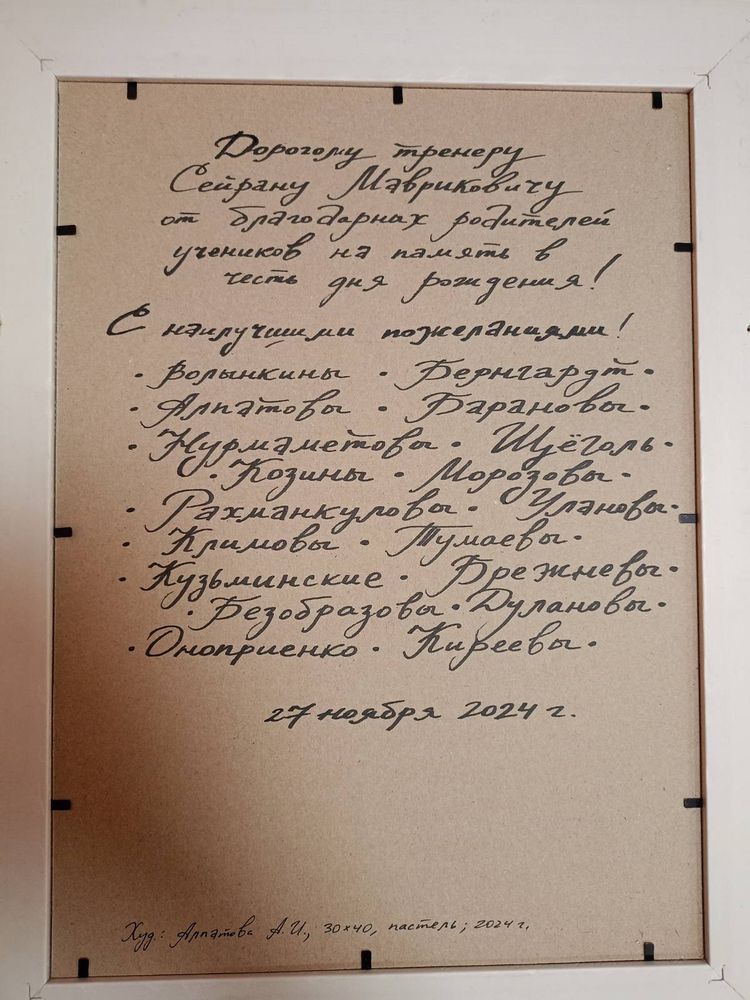 Дорогому тренеру
Сейрану Мавриковичу
от благодарных родителей
учеников на память в
честь дня рождения!
С наилучшими пожеланиями!
· Волынкины · Бернгардт ·
· Алпатовы · Барановы ·
· Нурмаметовы · Щёголь ·
· Козины · Морозовы ·
· Рахманкуловы · Улановы ·
· Климовы · Тумаевы ·
· Кузьминские · Брежневы ·
· Безобразовы · Дулановы ·
· Оноприенко · Киреевы ·
27 ноября 2024 г.
Худ.: Алпатова А.И., 30×40, пастель; 2024 г.